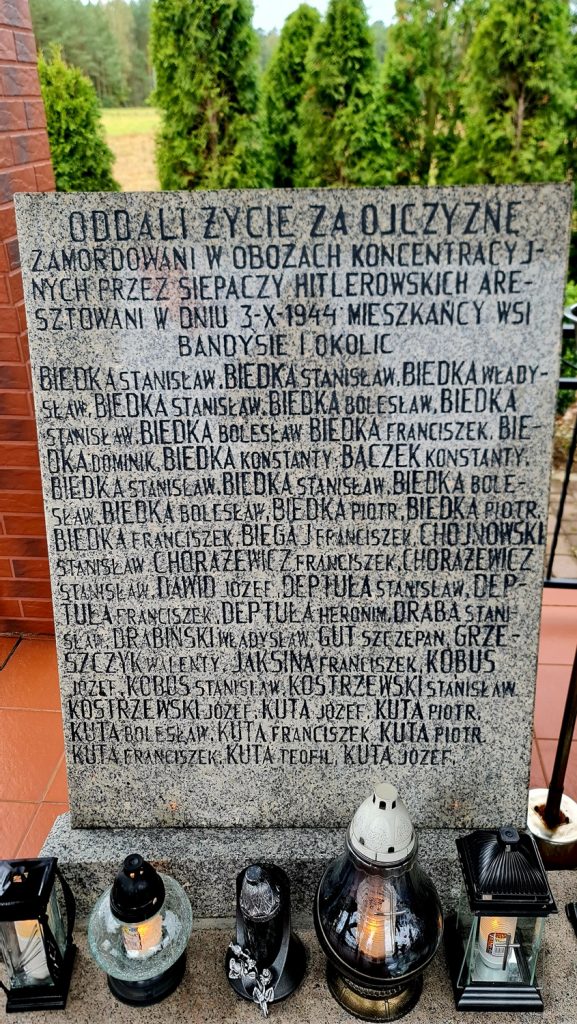 ODDALI ŻYCIE ZA OJCZYZNĘ
ZAMORDOWANI W OBOZACH KONCENTRACYJ-
NYCH PRZEZ SIEPACZY HITLEROWSKICH ARE-
SZTOWANI W DNIU 3-X-1944 MIESZKAŃCY WSI
BANDYSIE I OKOLIC
BIEDKA STANISŁAW, BIEDKA STANISŁAW, BIEDKA WŁADY-
SŁAW, BIEDKA STANISŁAW, BIEDKA BOLESŁAW, BIEDKA
STANISŁAW, BIEDKA BOLESŁAW BIEDKA FRANCISZEK, BIE-
DKA DOMINIK, BIEDKA KONSTANTY, BĄCZEK KONSTANTY,
BIEDKA STANISŁAW, BIEDKA STANISŁAW, BIEDKA BOLE-
SŁAW, BIEDKA BOLESŁAW, BIEDKA PIOTR, BIEDKA PIOTR,
BIEDKA FRANCISZEK, BIEGAJ FRANCISZEK, CHOJNOWSKI
STANISŁAW CHORĄŻEWICZ FRANCISZEK, CHORĄŻEWICZ
STANISŁAW, DAWID JÓZEF, DEPTUŁA STANISŁAW, DEP-
TUŁA FRANCISZEK, DEPTUŁA HERONIM, DRABA STANI-
SŁAW, DRABIŃSKI WŁADYSŁAW, GUT SZCZEPAN, GRZE-
SZCZYK WALENTY, JAKSINA FRANCISZEK, KOBUS
JÓZEF, KOBUS STANISŁAW, KOSTRZEWSKI STANISŁAW
KOSTRZEWSKI JÓZEF, KUTA JÓZEF, KUTA PIOTR,
KUTA BOLESŁAW, KUTA FRANCISZEK, KUTA PIOTR,
KUTA FRANCISZEK, KUTA TEOFIL, KUTA JÓZEF,